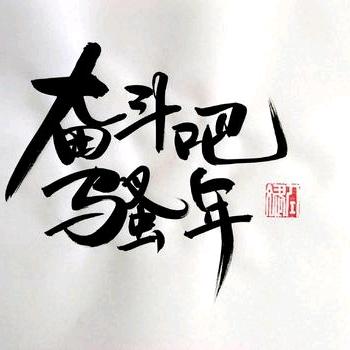 奋斗吧
骚年